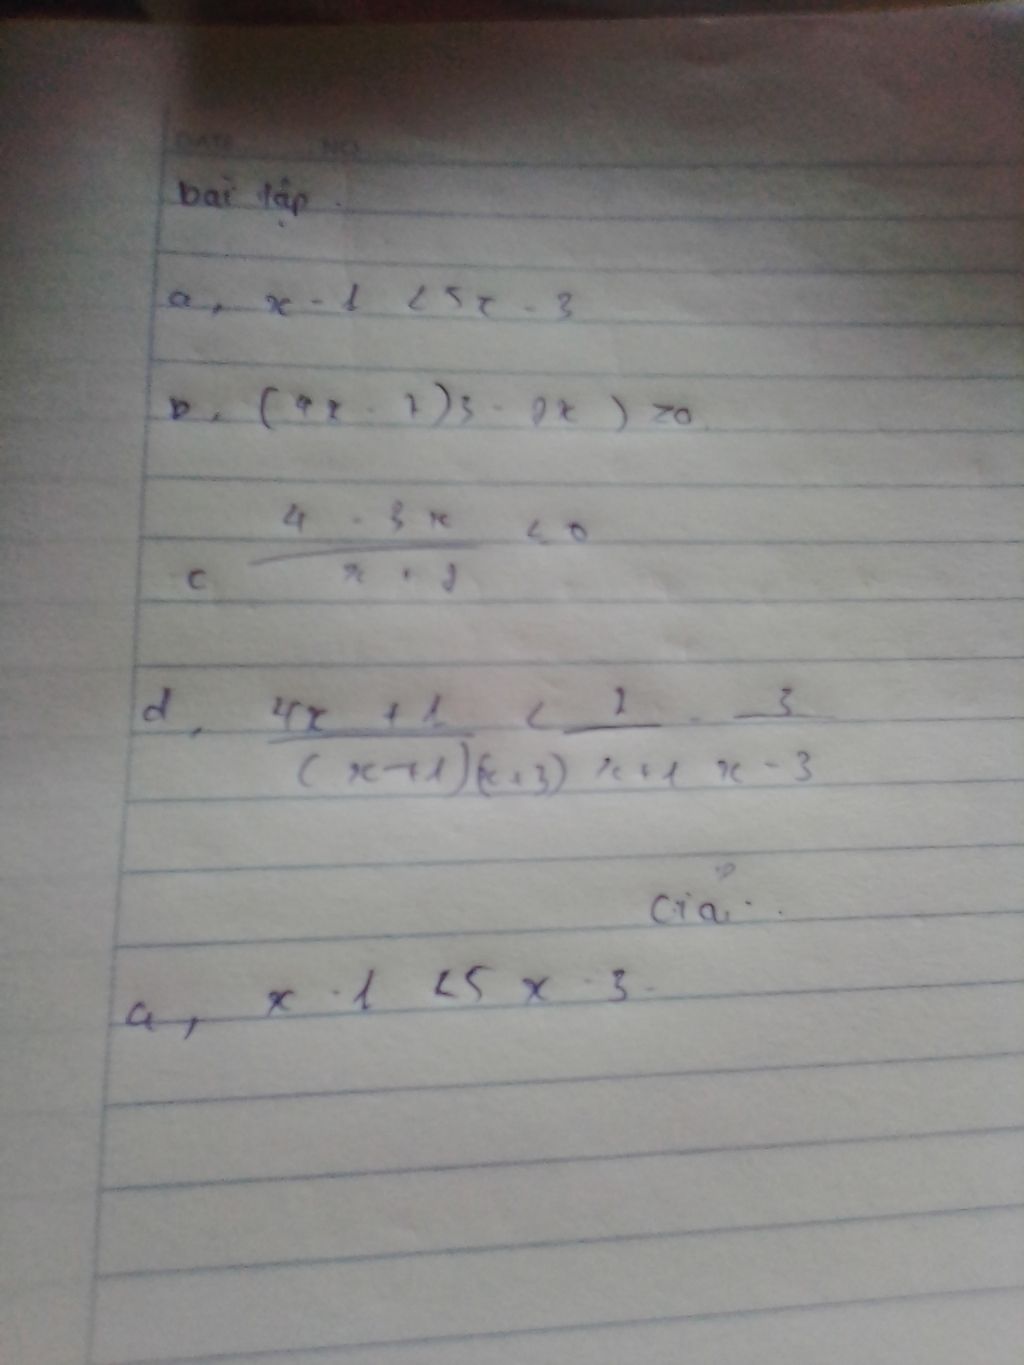 DATE NO
bài tập.
a, x - 1 < 5x - 3
b, (4x - 7)3 - 2x) > 0
4 - 3x < 0
c x + 2
d, 4x + 1 < 2 - 3
(x+1)(x+3) x+1 x-3
Giải.
a, x - 1 < 5x - 3.